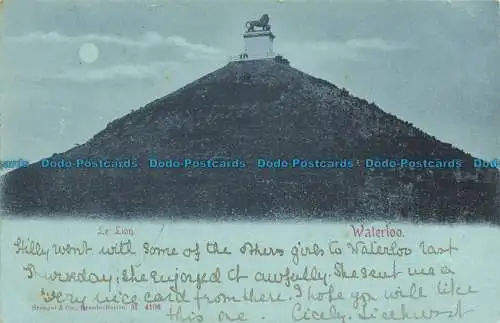 Dodo-Postcards Dodo-Postcards Dodo-Postcards Dodo-Postcards
Le Lion.
Waterloo.
Hilly went with some of the others girls to Waterloo last
Thursday, she enjoyed it awfully. She sent me a
very nice card from there. I hope you will like
this one. Cicely.
Stengel & Co.,
4106